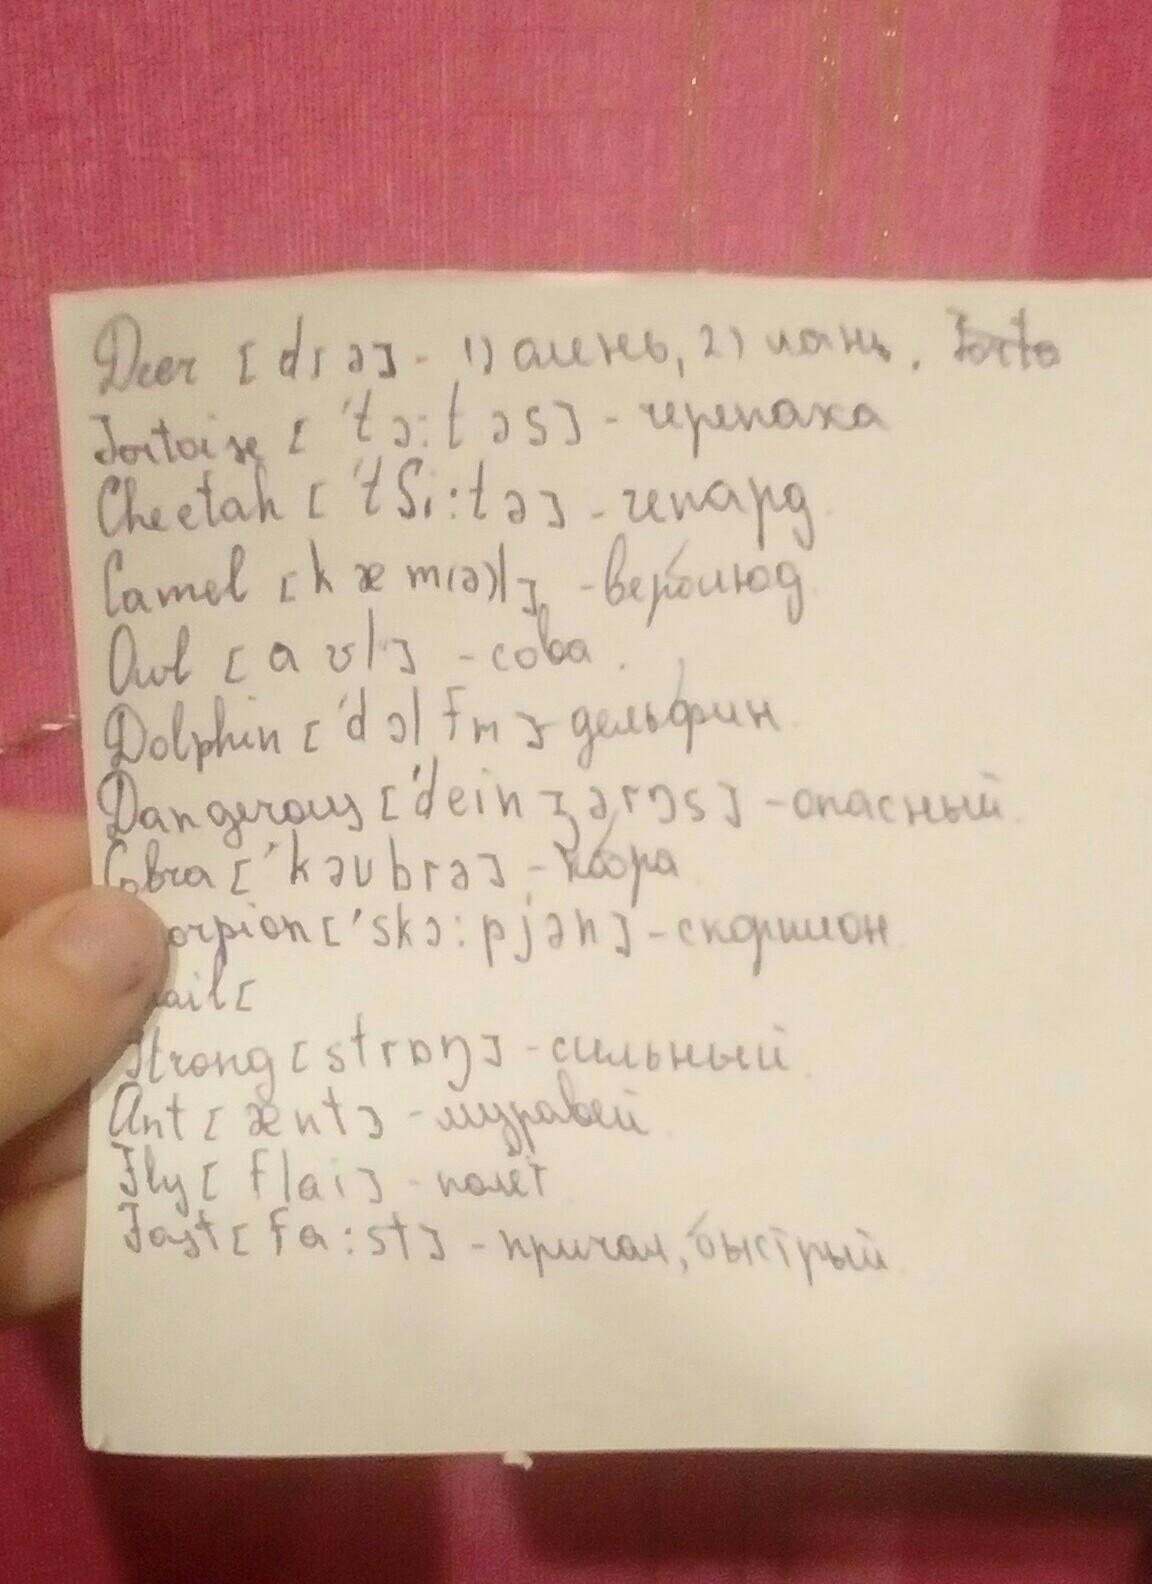 Deer [dɪə] - 1) олень, 2) лань. Torto
Tortoise ['tɔ:təs] - черепаха
Cheetah ['tʃi:tə] - гепард
Camel [kæm(ə)l] - верблюд
Owl [aʊl] - сова.
Dolphin ['dɔlfɪn] - дельфин
Dangerous ['deinʒərəs] - опасный.
Cobra ['kəʊbrə] - кобра
orpion ['skɔ:pjən] - скорпион
ail [
Strong [strɒŋ] - сильный.
Ant [ænt] - муравей
Fly [flai] - полёт
Fast [fa:st] - причал, быстрый